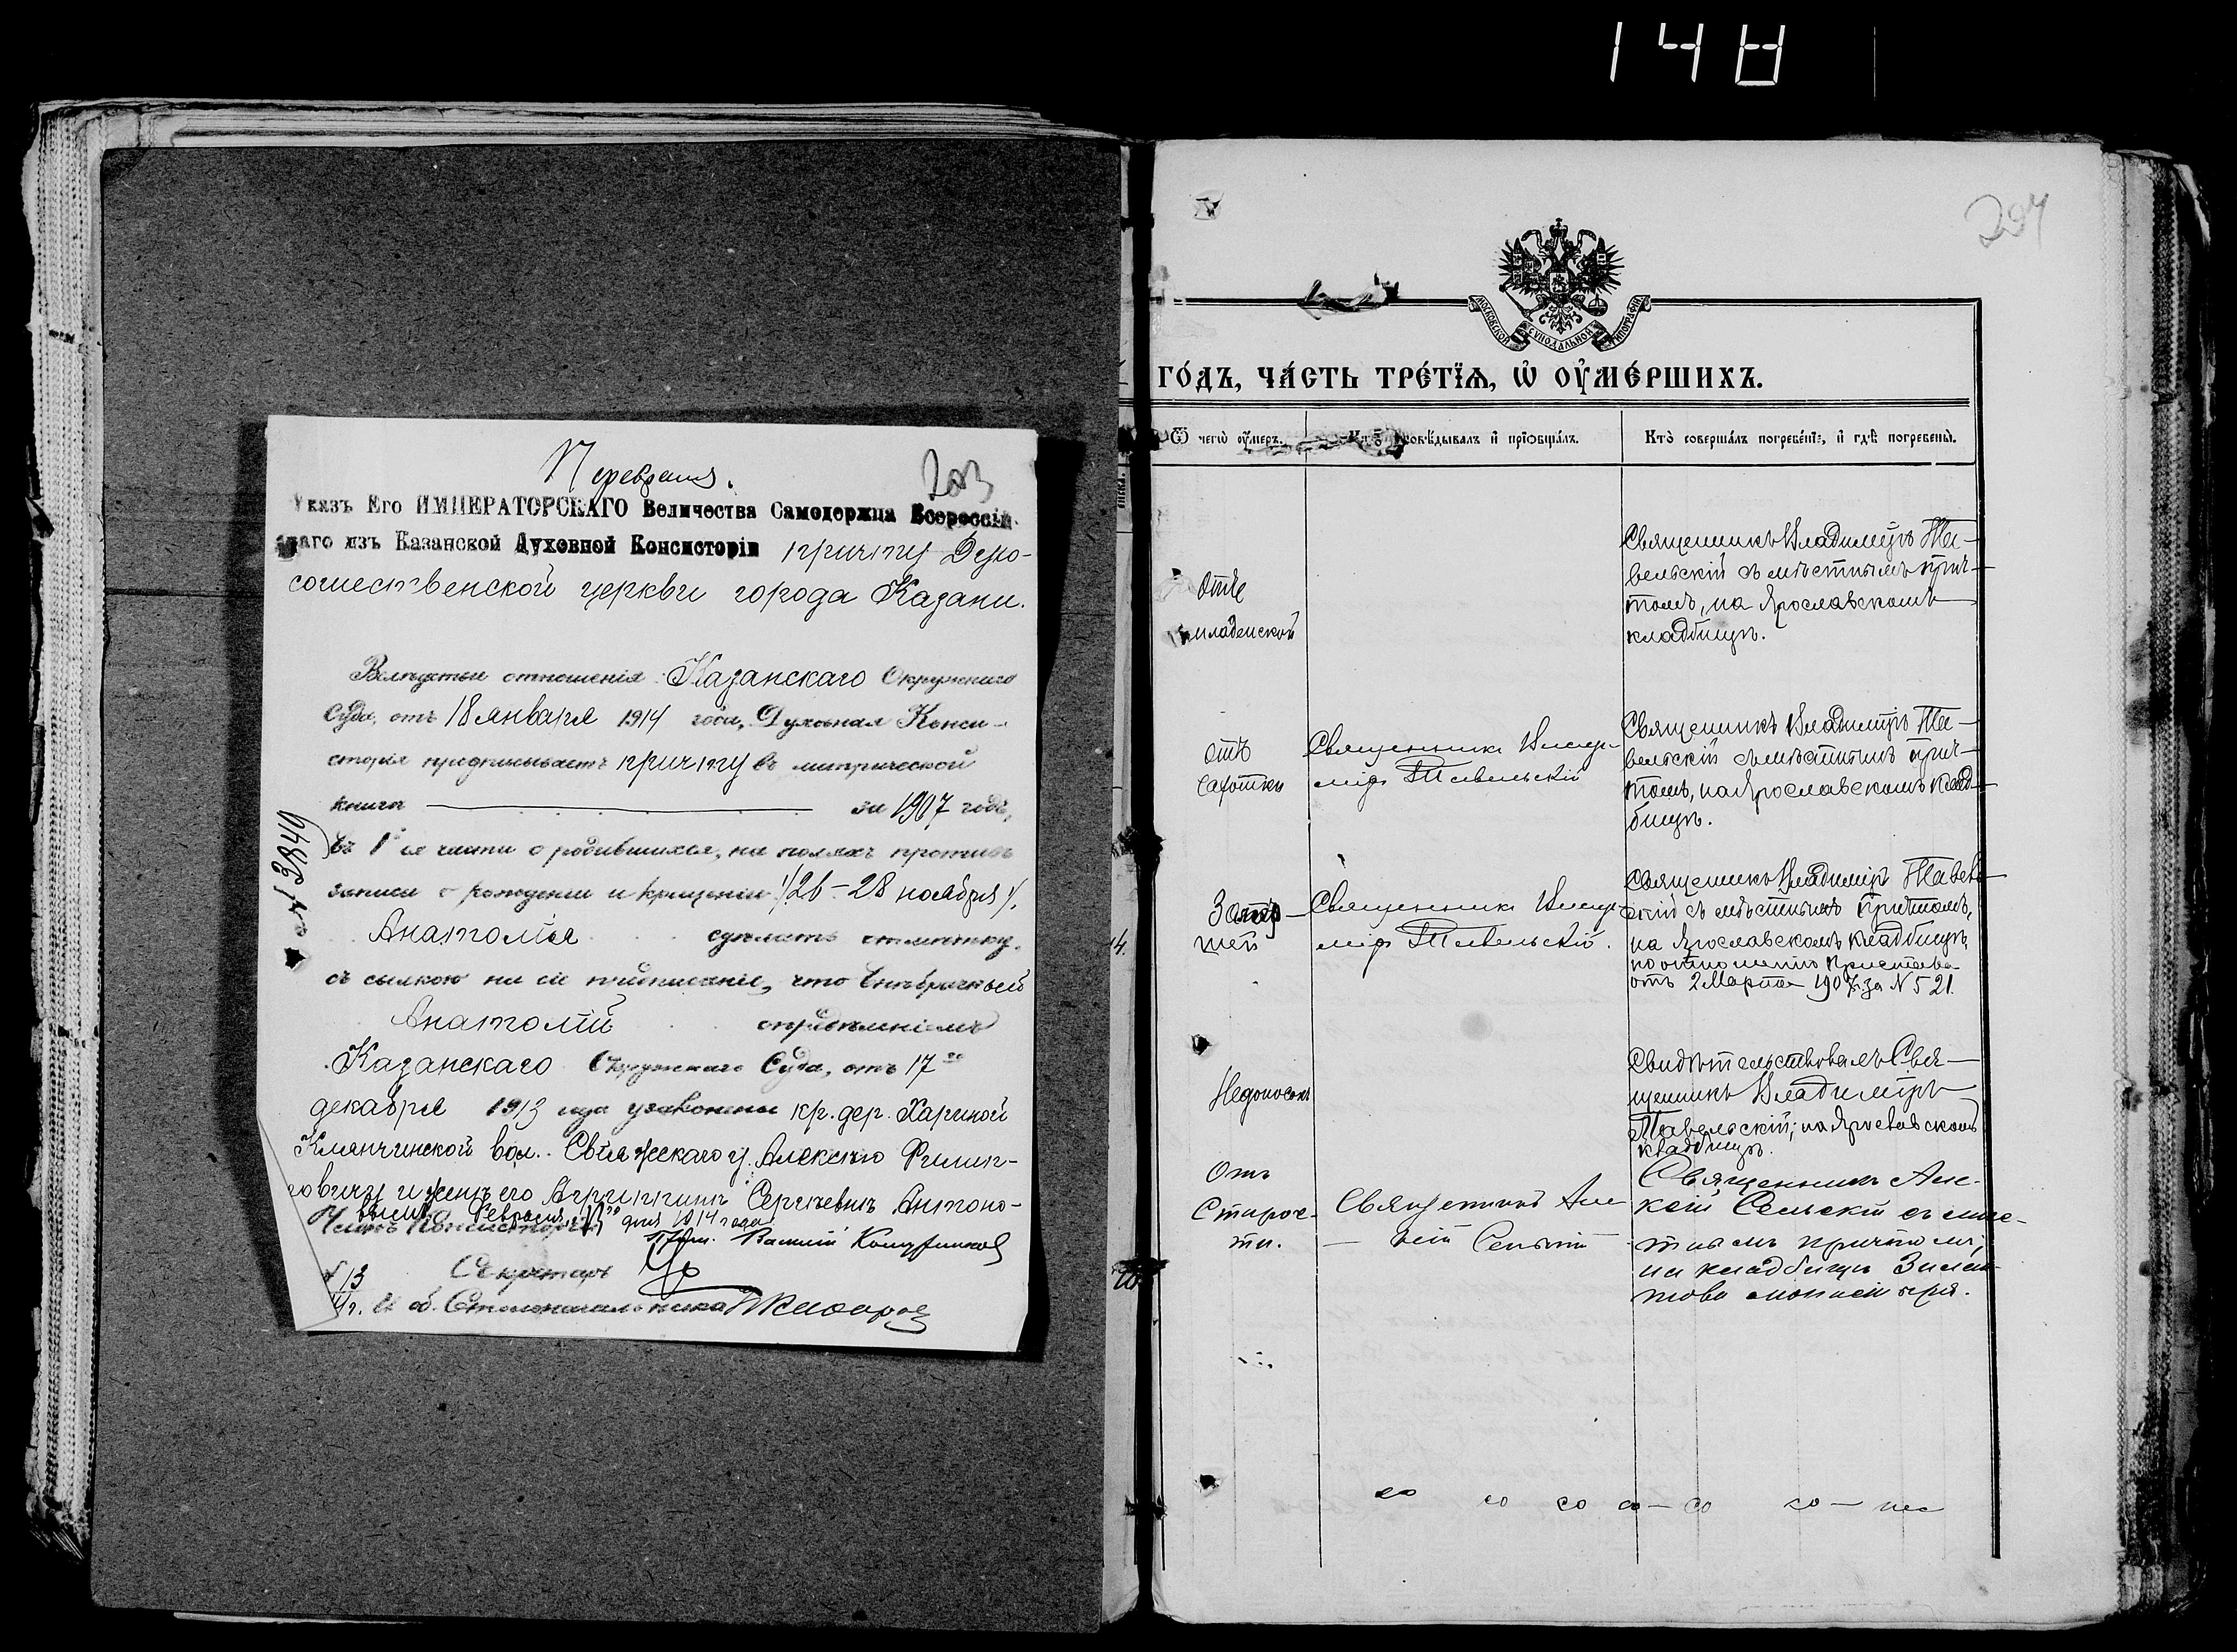 148
Переврашя.
203
Указъ Его ИМПЕРАТОРСКАГО Величества Самодержца Всероссій-
скаго изъ Казанской Духовной Консисторіи причту Духо-
сошественской церкви города Казани.
Вслѣдствіи отношенія Казанскаго Окружнаго
Суда, отъ 18 января 1914 года, Духовная Конси-
сторія предписываетъ причту въ метрической
книгѣ за 1907 годъ,
въ 1ой части о родившихся, на поляхъ противъ
записи о рожденіи и крещеніи /26-28 ноября/,
Анатолія сдѣлать отмѣтку,
съ сылкою на сіе предписаніе, что внѣбрачный
Анатолій опредѣленіемъ
Казанскаго Окружнаго Суда, отъ 17го
декабря 1913 года узаконенъ кр. дер. Хариной
Клянчинской вол. Свіяжскаго у. Алексѣю Филип-
повичу и женѣ его Агриппинѣ Сергѣевнѣ Антоно-
выми Февраля дня 1914 года
Членъ Консисторіи Прот. Василій
Секретарь
И об. Столоначальника
№ 3849
204
МОСКОВСКОЙ СѴНОДАЛЬНОЙ ТИПОГРАФІИ
ГО́ДЪ, ЧА́СТЬ ТРЕ́ТЇѦ, Ѡ҆ ОУ҆МЕ́РШИХЪ.
Ѿ чегѡ̀ оу҆́меръ.
Кто̀ и҆сповѣ́дывалъ и҆ прїѡбща́лъ.
Кто̀ соверша́лъ погребе́нїе, и҆ гдѣ̀ погребены̀.
Отъ
младенской
Священникъ Владиміръ Та-
вельскій съ мѣстнымъ прич-
томъ, на Ярославскомъ
кладбищѣ.
отъ
чахотки
Священникъ Влади-
міръ Тавельскій
Священникъ Владиміръ Та-
вельскій съ мѣстнымъ прич-
томъ, на Ярославскомъ клад-
бищѣ.
Священникъ Влади-
міръ Тавельскій.
Священникъ Владиміръ Тавель-
скій съ мѣстнымъ причтомъ,
на Ярославскомъ кладбищѣ,
по отношенію Пристава
отъ 2 Марта 1907 г. за № 521.
Недоносокъ
Свидѣтельствовалъ Свя-
щенникъ Владиміръ
Тавельскій; на Ярославскомъ
кладбищѣ.
Отъ
Старос-
ти.
Священникъ Але-
ксій Сельскій
Священникъ Але-
ксій Сельскій съ мѣс-
тнымъ причтомъ,
на кладбищѣ Зилан-
това монастыря.